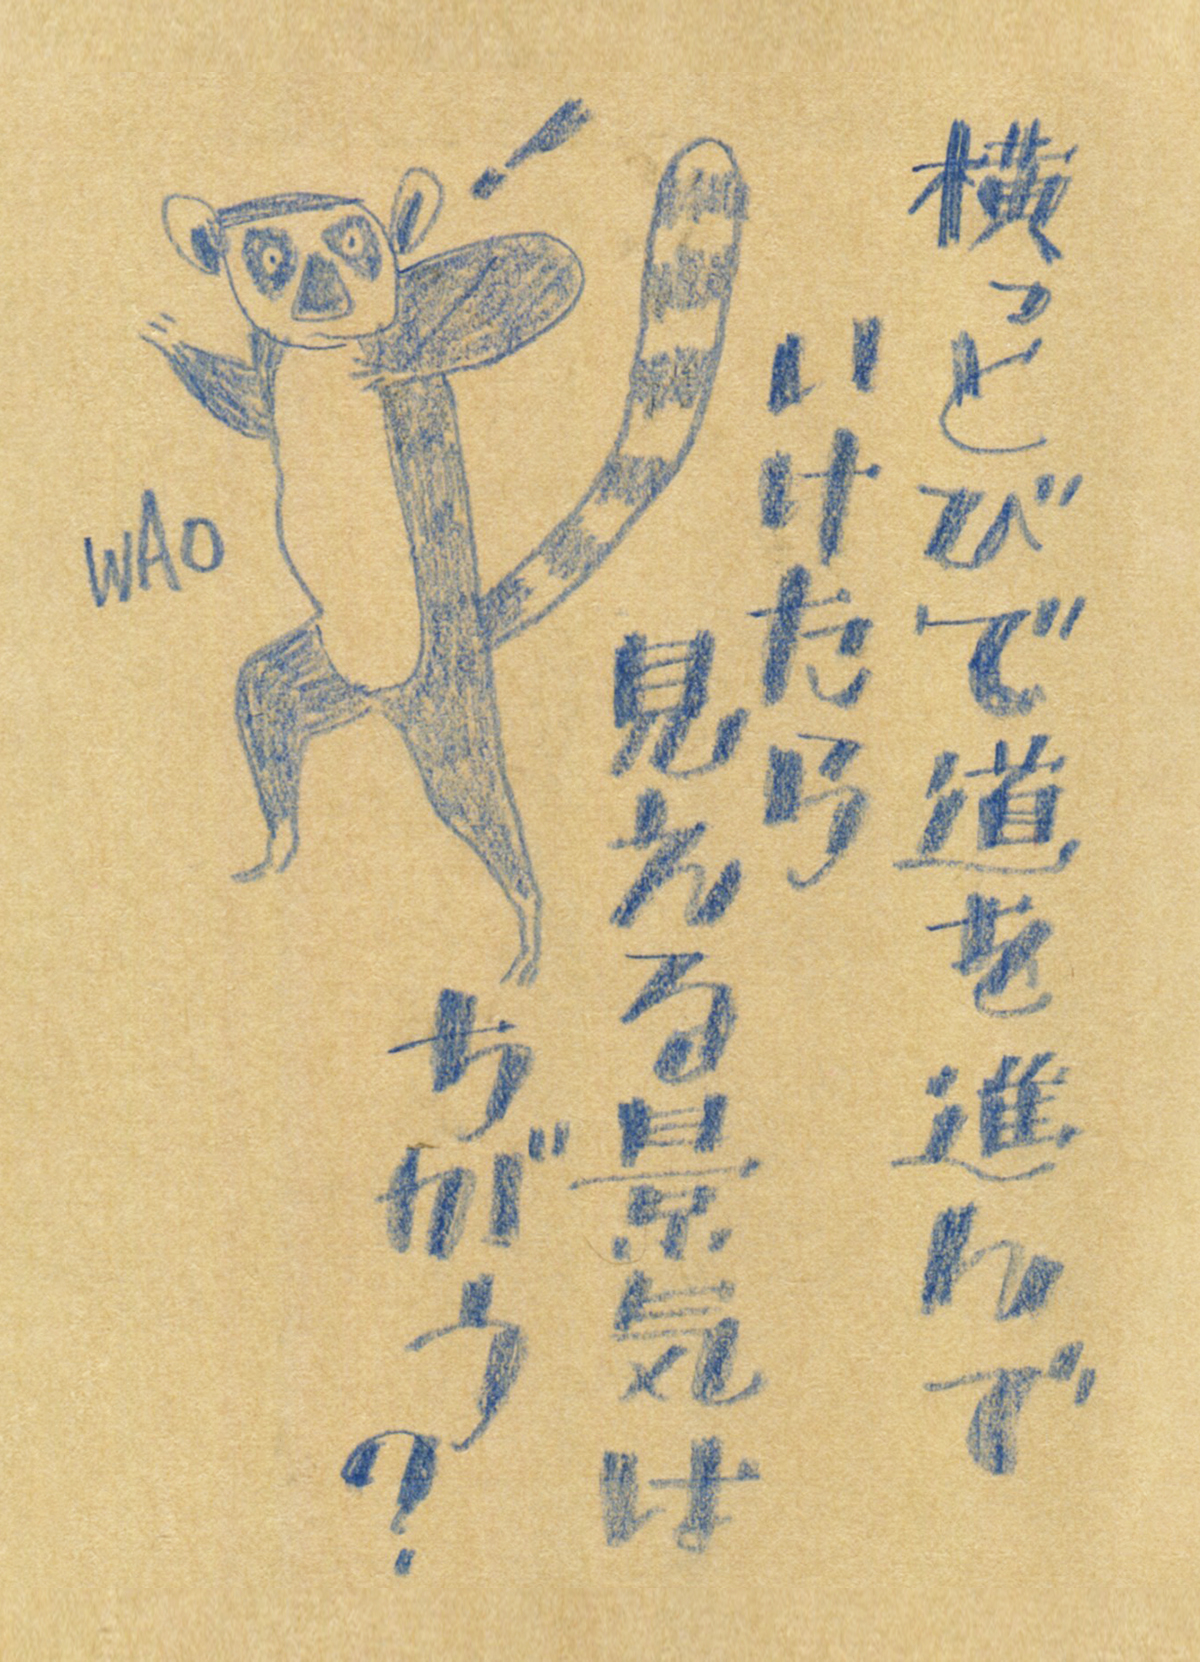 横っとびで道を進んで
いけたら
見える景気は
ちがう?
!
WAO